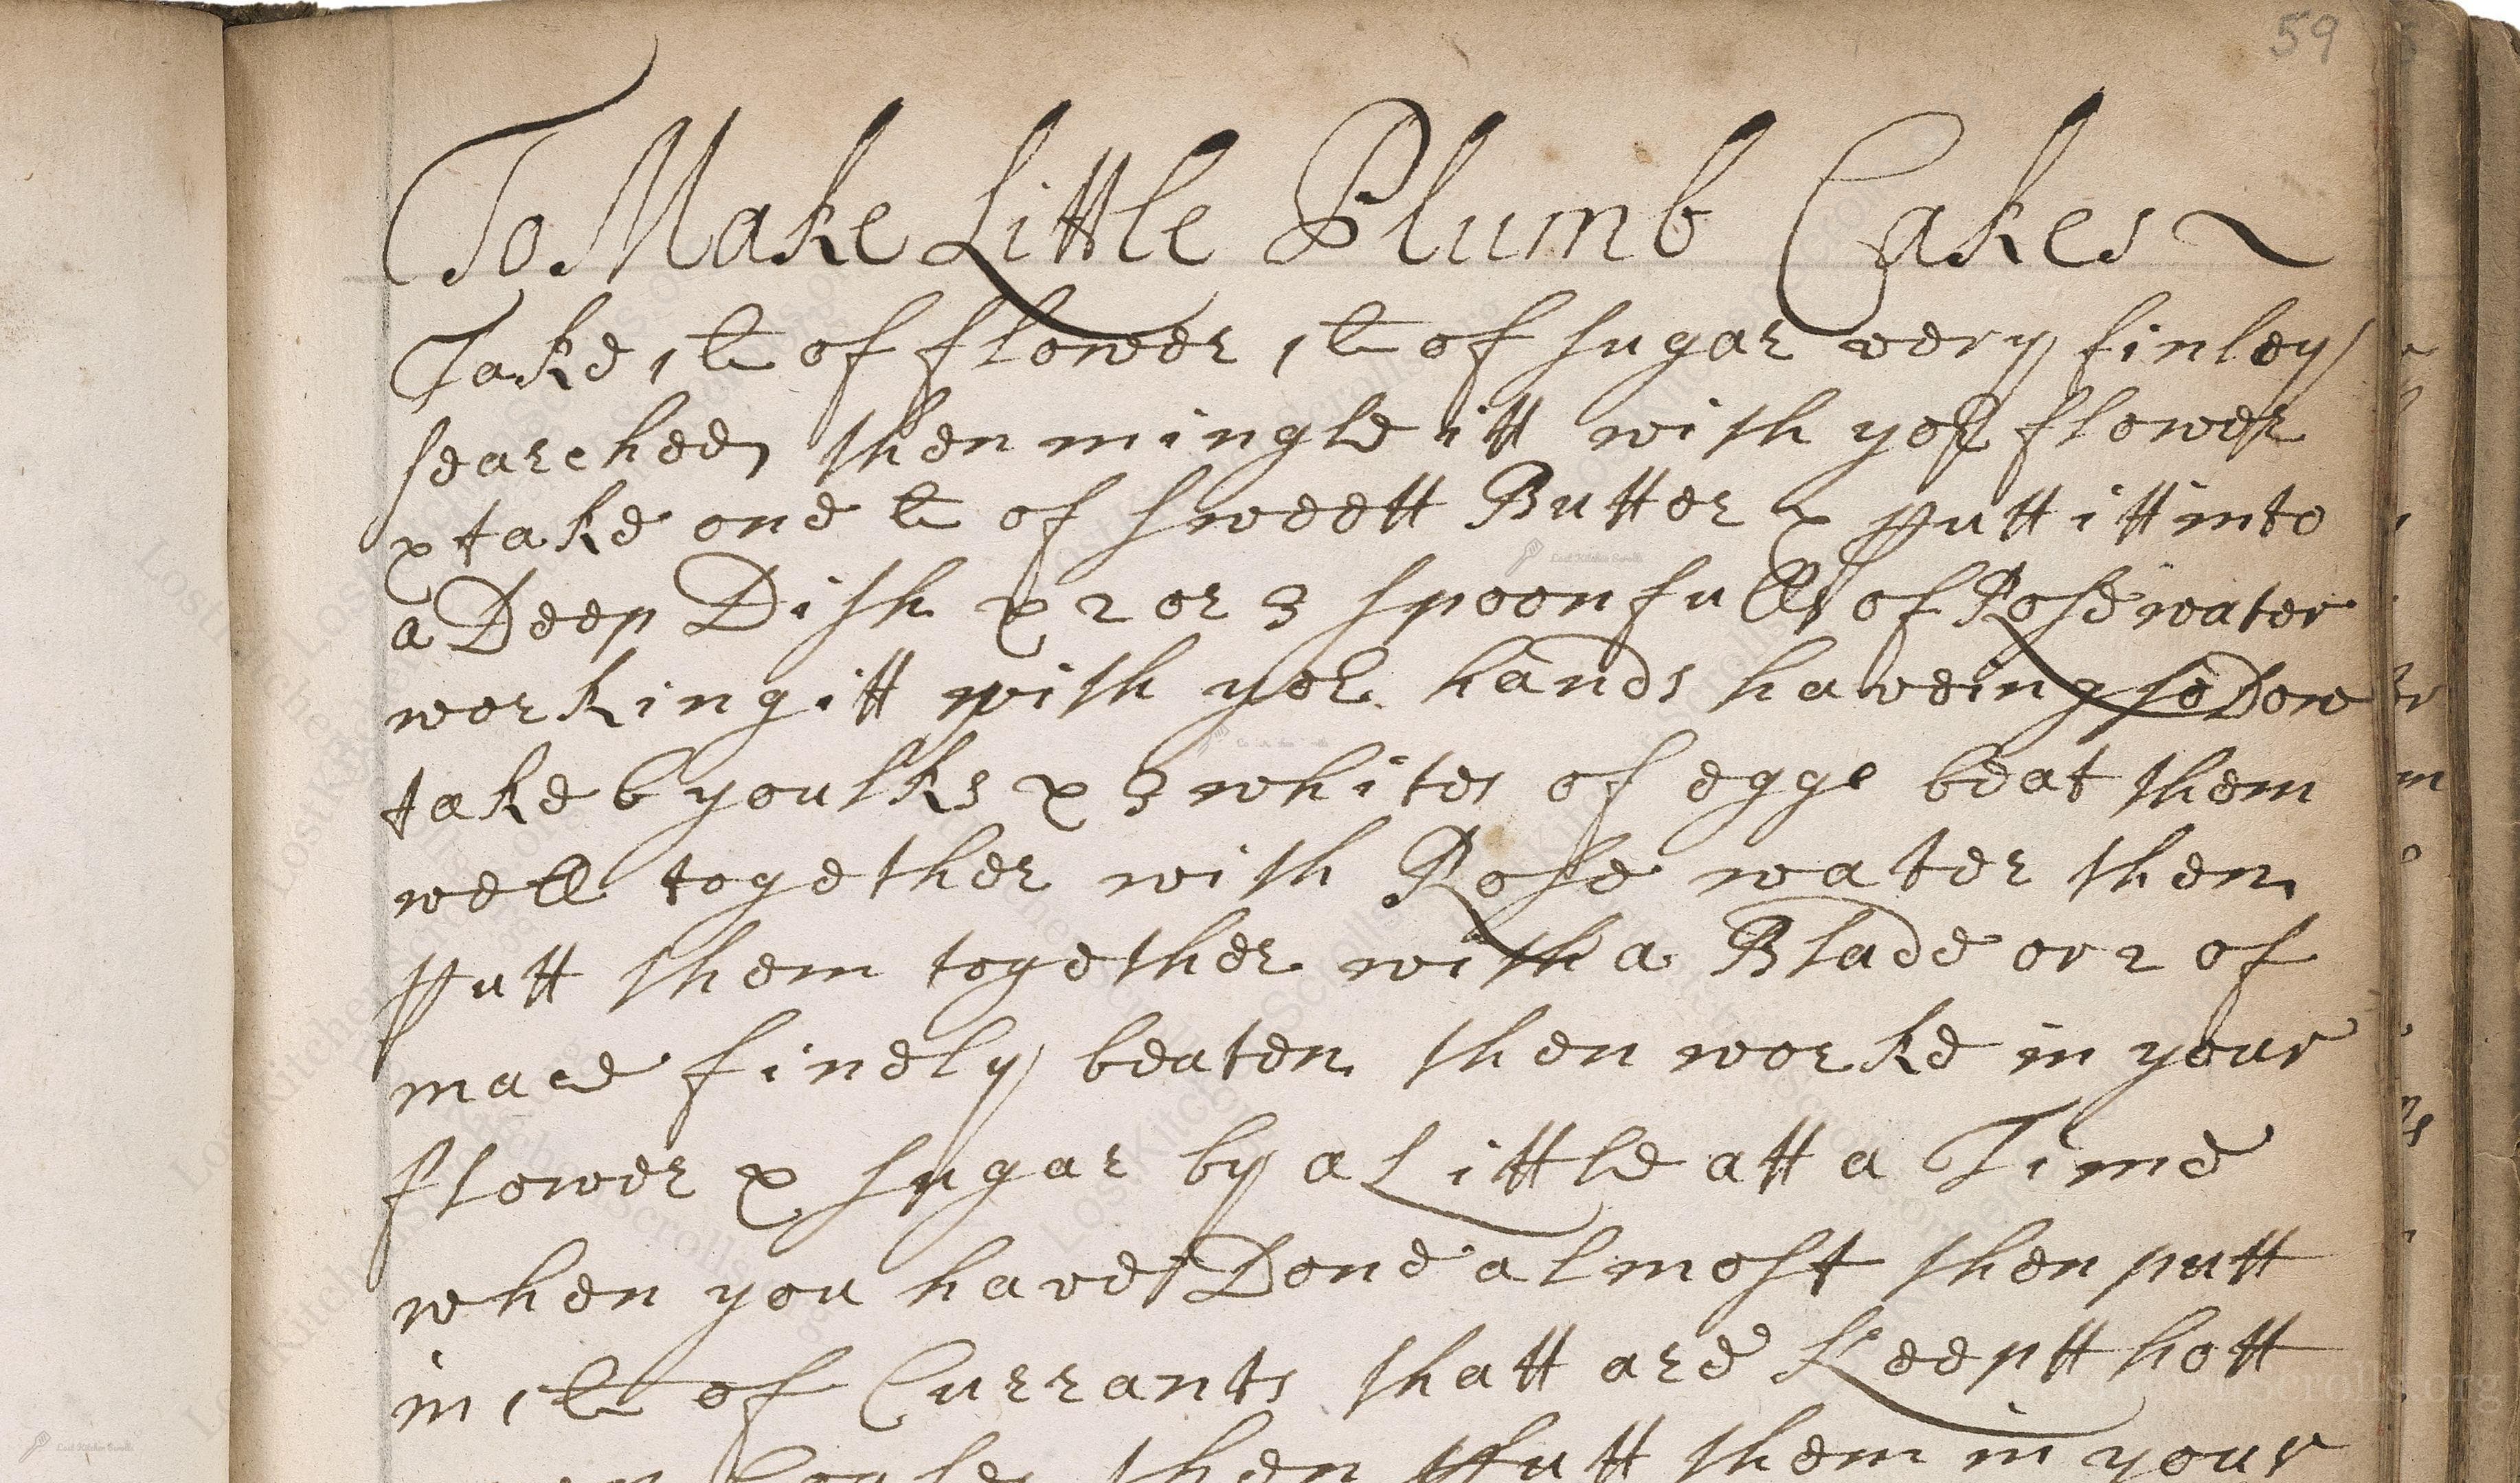 59
To Make Little Plumb Cakes
Take 1 lb of flower 1 lb of sugar very finley
searched then mingle itt with yor flower
& take one lb of sweett Butter & putt itt into
a Deep Dish & 2 or 3 spoonfulls of Rose water
working itt with yor hands haveing so Don
take 6 youlks & 3 whites of eggs beat them
well together with Rose water then
putt them together with a Blade or 2 of
mace finely beaten then worke in your
flower & sugar by a Little att a Time
when you have Done almost then putt
in 1 lb of Currants thatt are Keeptt hott
then putt them in your